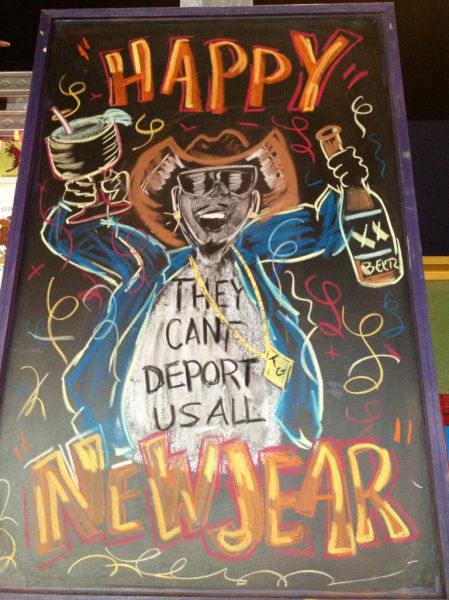 "HAPPY"
XX
BEER
THEY
CAN'T
DEPORT
US ALL
"NEW JEAR"